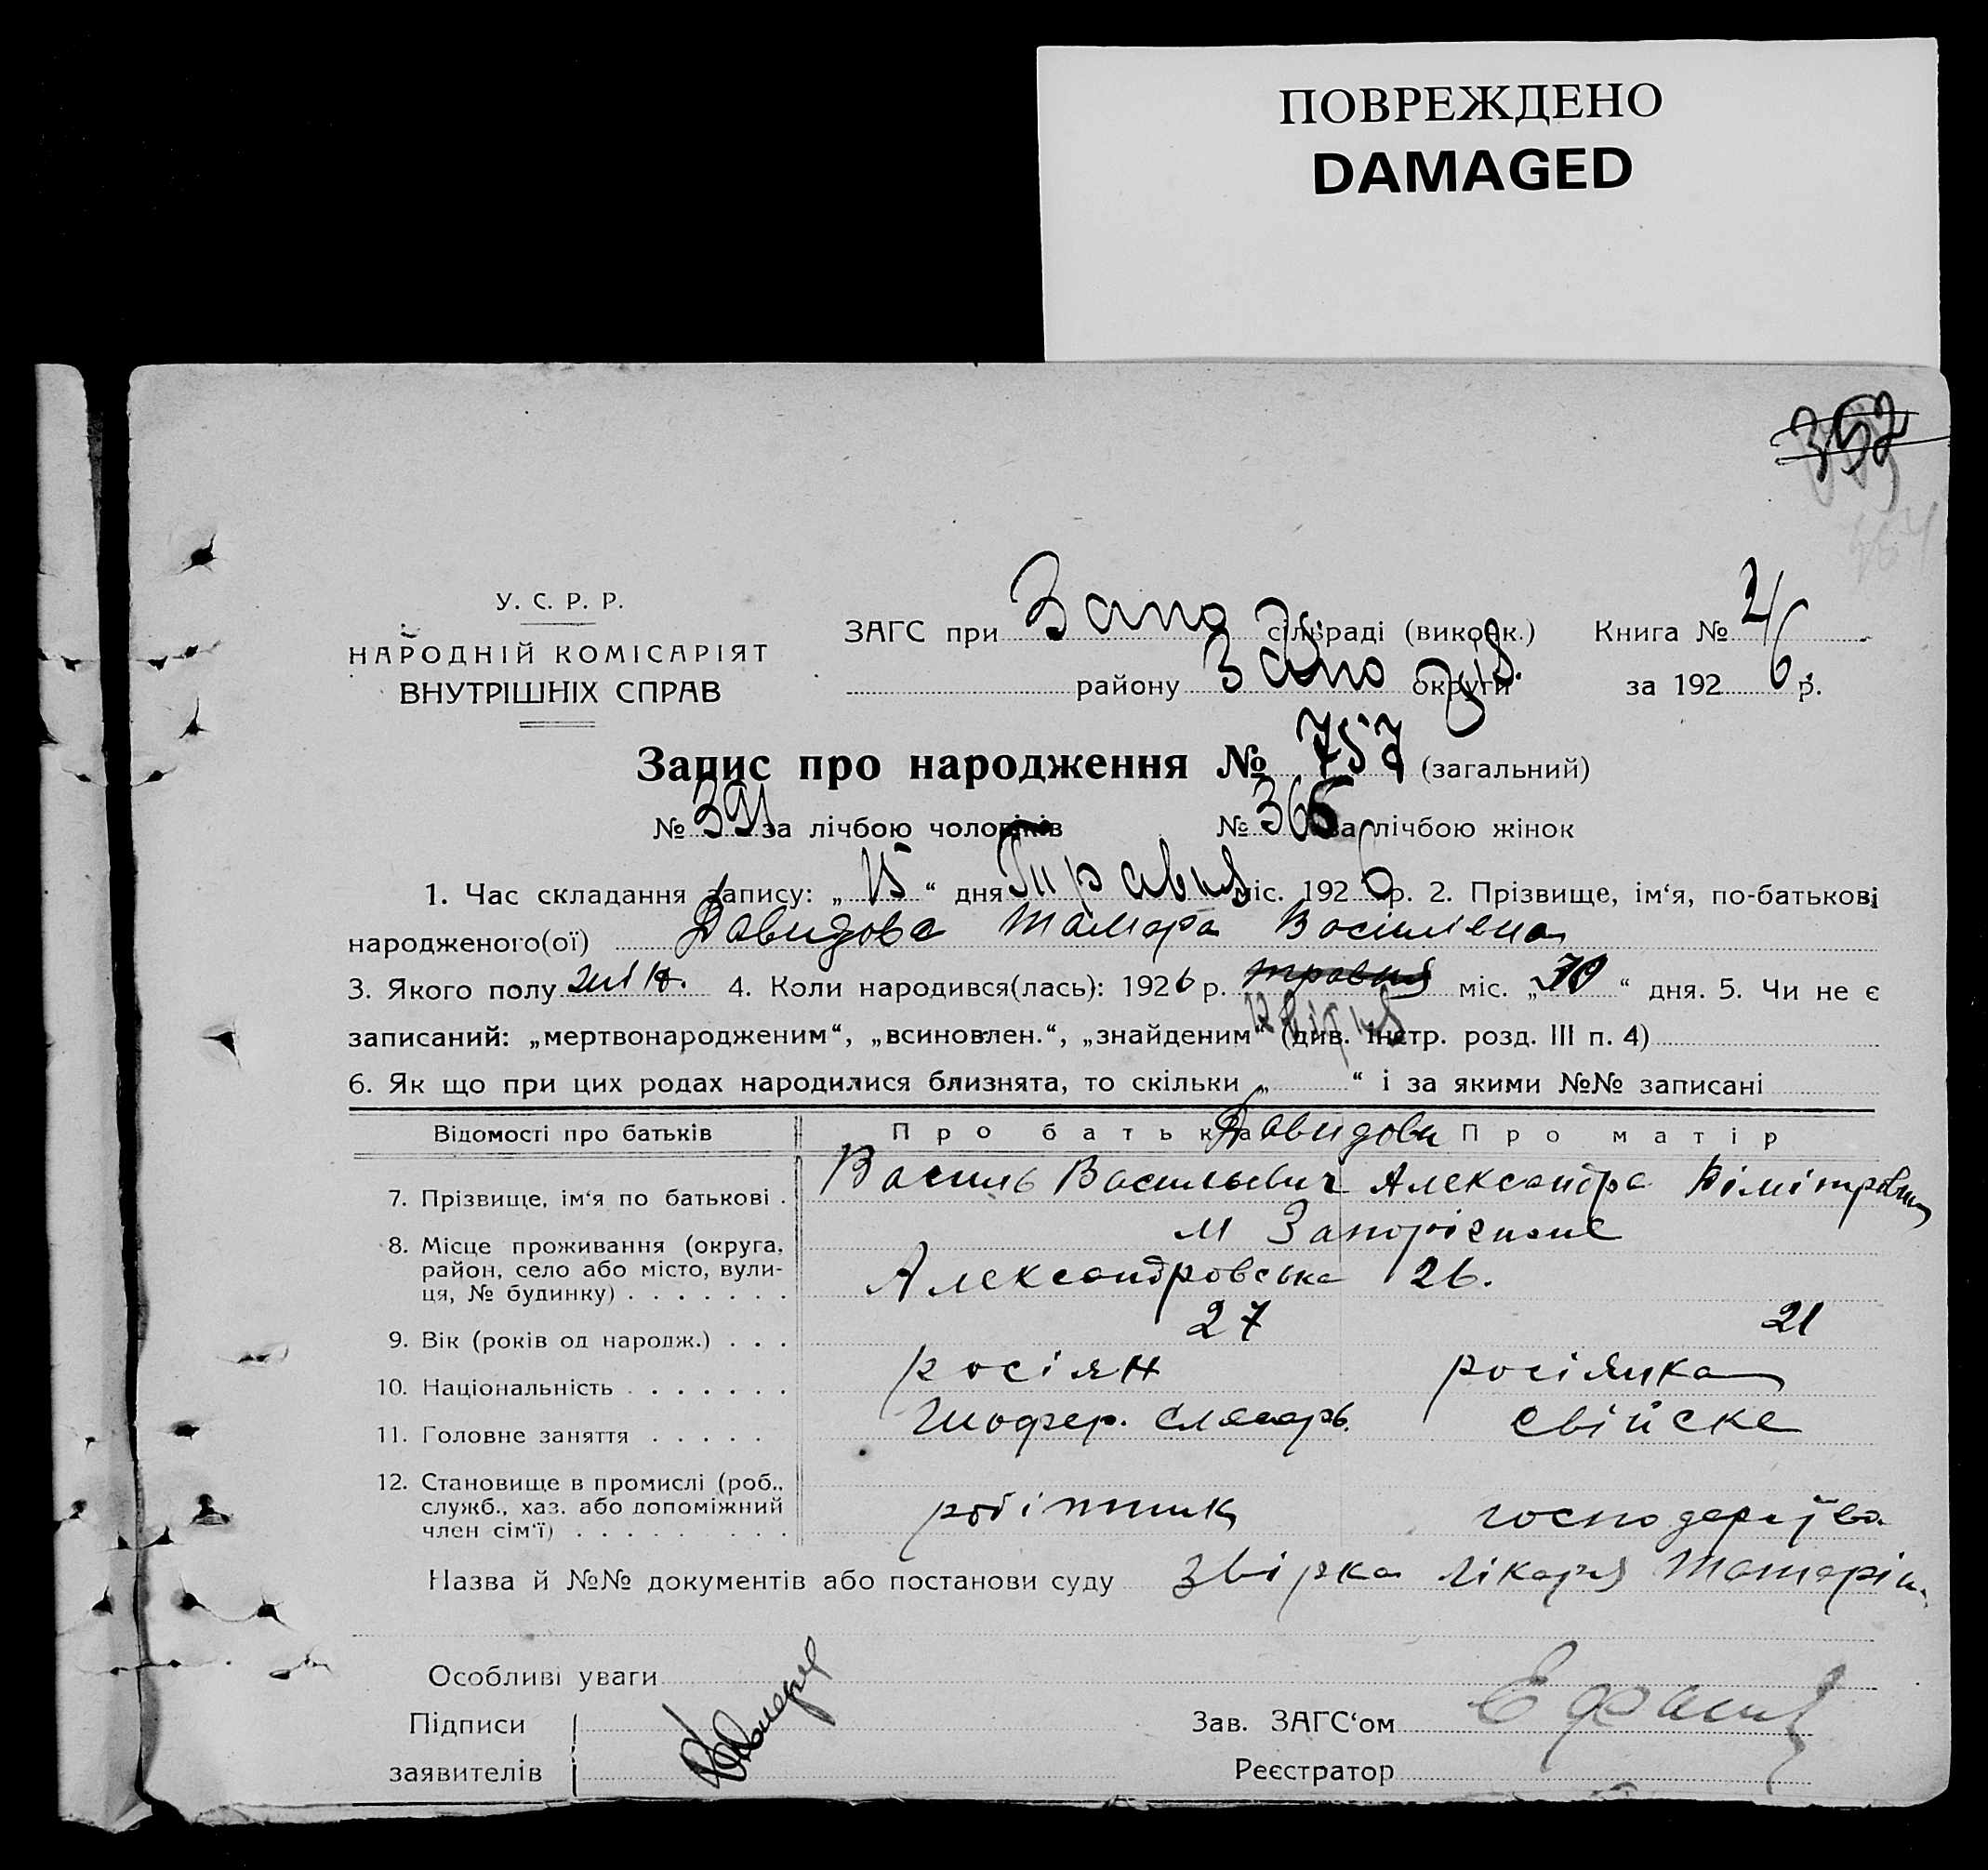 ПОВРЕЖДЕНО
DAMAGED
352
У. С. Р. Р.
НАРОДНІЙ КОМІСАРІЯТ
ВНУТРІШНІХ СПРАВ
ЗАГС при Запо сільраді (виконк.) Книга № 2
району Запо округи за 1926 р.
Запис про народження № 757 (загальний)
№ 391 за лічбою чоловіків № 366 за лічбою жінок
1. Час складання запису: „15“ дня Травня міс. 1926 р. 2. Прізвище, ім‘я, по-батькові
народженого(ої) Давидова Тамара Васілівна
3. Якого полу жін. 4. Коли народився(лась): 1926 р. травня міс. „30“ дня. 5. Чи не є
квітня
записаний: „мертвонародженим“, „всиновлен.“, „знайденим“ (див. Інстр. розд. III п. 4)
6. Як що при цих родах народилися близнята, то скільки „ “ і за якими №№ записані
Відомості про батьків Про батька Давидови Про матір
7. Прізвище, ім‘я по батькові . Василь Васильевич Александра Дімітровна
8. Місце проживання (округа, м Запоріжжє
район, село або місто, вули- Александровська 26.
ця, № будинку) . . . . . . .
9. Вік (років од народж.) . . . 27 21
10. Національність . . . . . . . росіян росіянка
11. Головне заняття . . . . . Шофер. слесарь. свійске
12. Становище в промислі (роб.,
служб., хаз. або допоміжний робітник господарство
член сім‘ї) . . . . . . . . .
Назва й №№ документів або постанови суду звірка лікаря
Особливі уваги
Підписи Зав. ЗАГС‘ом
заявителів Реєстратор